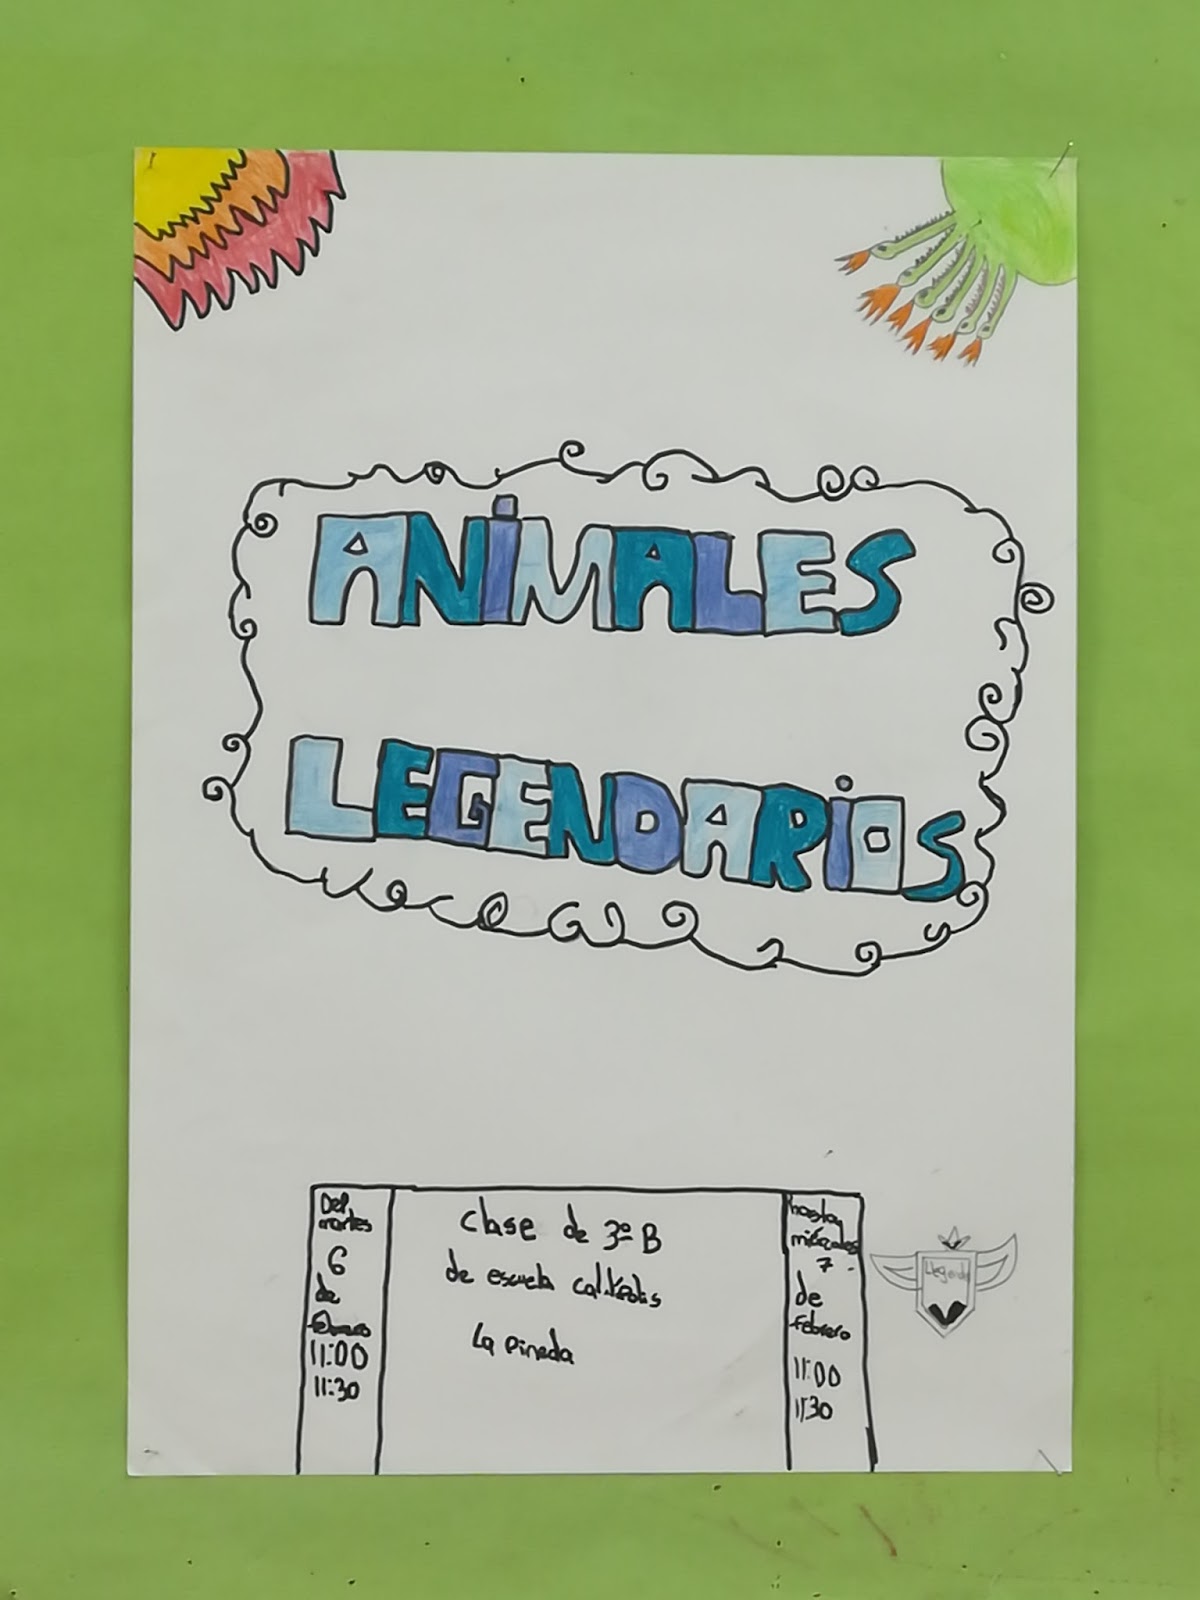 ANiMALES
LEGENDARiOS
Del
martes
6
de
febrero
11:00
11:30
Clase de 3º B
de escuela cal·lípolis
La Pineda
hasta
miércoles
7
de
febrero
11:00
11:30